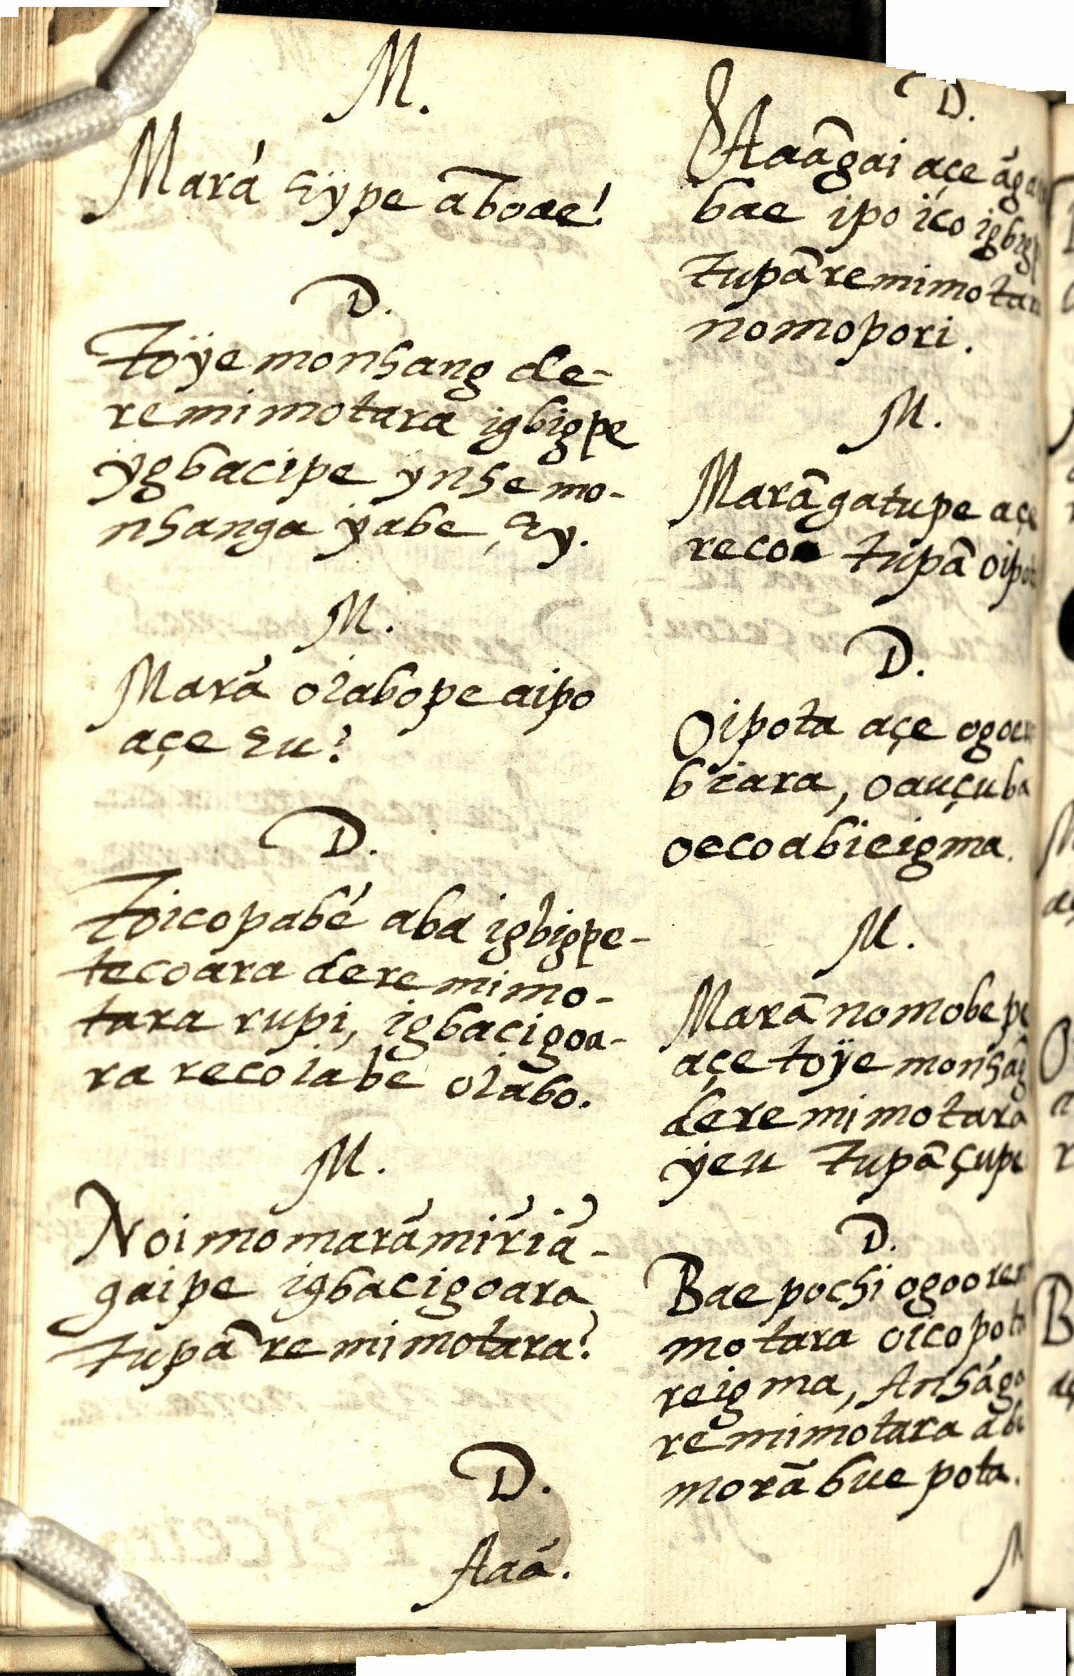 M.
Mará Eÿpe aboae!
D.
Toÿe monhang de-
remimotara igbigpe
ÿgbacipe ÿnhemo-
nhanga ÿabe, Ey.
M.
Marã oiabope aipo
açe Eu?
D.
Toicopabé aba igbigpe-
tecoara deremimo-
tara rupi, igbacigoa-
ra recoiabe oiabo.
M.
Noimomarãmiriã-
gaipe igbacigoara
tupã remimotara?
D.
Aaá.
D.
Aaãgai açe
bae ipo ico
tupã
nomopori.
M.
Marãgatupe
recoe tupã
D.
Oipota açe
biara, oauçuba
oecoabieigma.
M.
Marã nomobe pe
açe toÿe
deremimotara
ÿeu tupã çupi
D.
Bae pochi
motara
reigma,
remimotara
morãbue pota.
M